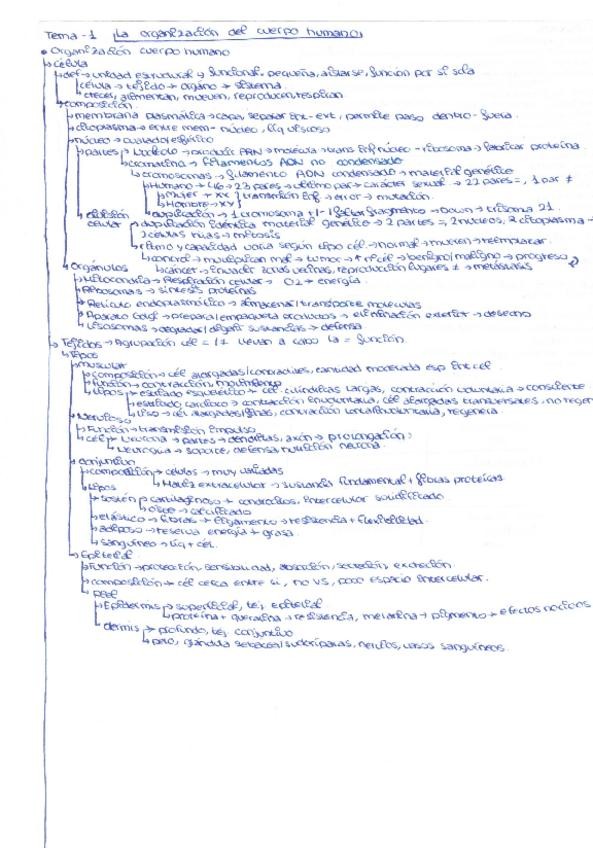 Tema - 1 La organización del cuerpo humano
• Organización cuerpo humano
↳ Célula
def → unidad estructural y funcional + pequeña, aislarse, función por si sola
célula → tejido → órgano → sistema
crecer, alimentan, mueven, reproducen, respiran
composición
membrana plasmática → capa, separar int - ext, permite paso dentro - fuera.
citoplasma → entre mem - núcleo, líq viscoso
núcleo → ovalado/esférico
partes → nucleolo → producir ARN → molécula → trans inf núcleo - ribosoma → fabricar proteína
cromatina → filamentos ADN no condensado
cromosomas → filamento ADN condensado → material genético
Humano → 46 → 23 pares → último par → carácter sexual → 22 pares =, 1 par ≠
Mujer → XX
Hombre → XY } transmisión inf → error → mutación.
duplicación → 1 cromosoma +/- 1 → Down → trisomía 21.
división celular → duplicación idéntica material genético → 2 partes =, 2 núcleos, 2 citoplasma →
células hijas → mitosis
Ritmo y capacidad varía según tipo cél → normal → mueren → reemplazar.
control → multiplican mal → tumor → benigno/maligno → progreso
cáncer → invadir zonas vecinas, reproducción lugares ≠ → metástasis
Orgánulos
Mitocondria → Respiración celular → O2 + energía.
Ribosomas → síntesis proteínas
Retículo endoplasmático → almacenar/transporte moléculas
Aparato Golgi → prepara/empaqueta productos → eliminación exterior → desecho
Lisosomas → degradar/digerir sustancias → defensa
→ Tejidos → Agrupación cél = / ≠ llevan a cabo la = función.
Tipos
muscular
composición → cél alargadas/contráctiles, cantidad moderada esp intercel
función → contracción, movimiento
tipos → estriado esquelético → cél cilíndricas largas, contracción voluntaria → consciente
estriado cardíaco → contracción involuntaria, cél alargadas transversales, no regen
Liso → cél alargadas/finas, contracción lenta/involuntaria, regenera.
Nervioso
Función → transmisión impulso
cél → Neurona → partes → dendritas, axón → prolongación
Neuroglía → soporte, defensa, nutrición neurona.
conjuntivo
composición → células → muy variadas
Matriz extracelular → sustancia fundamental + fibras proteicas.
tipos
sostén → cartilaginoso → condrocitos, intercelular solidificado
óseo → calcificado
elástico → fibras → ligamento → resistencia + flexibilidad.
adiposo → reserva energía → grasa.
sanguíneo → líq + cél.
→ Epitelial
Función → protección, sensibilidad, absorción, secreción, excreción.
composición → cél cerca entre si, no VS, poco espacio intercelular.
piel
Epidermis → superficial, tej epitelial
proteína → queratina → resistencia, melanina → pigmento → efectos nocivos
dermis → profundo, tej conjuntivo
pelo, glándula sebácea/sudoríparas, nervios, vasos sanguíneos.